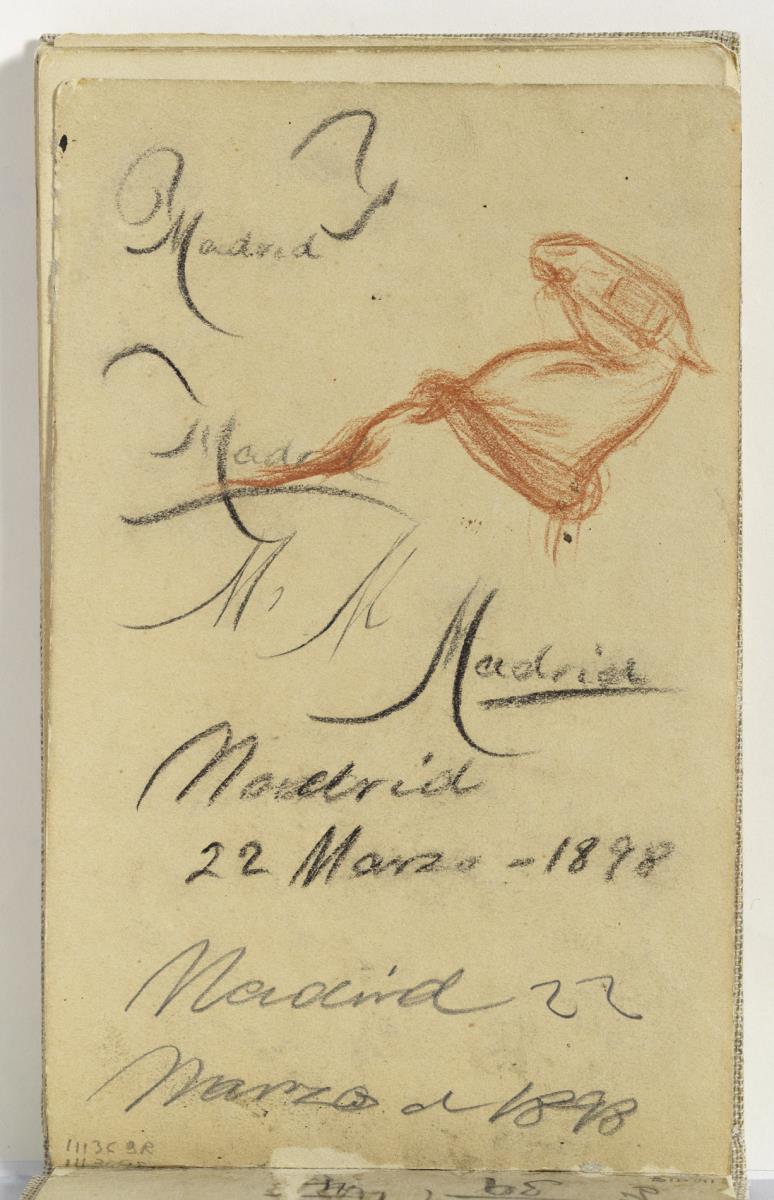 Madrid
Madrid
M, M
Madrid
Madrid
22 Marzo - 1898
Madrid 22
Marzo d 1898